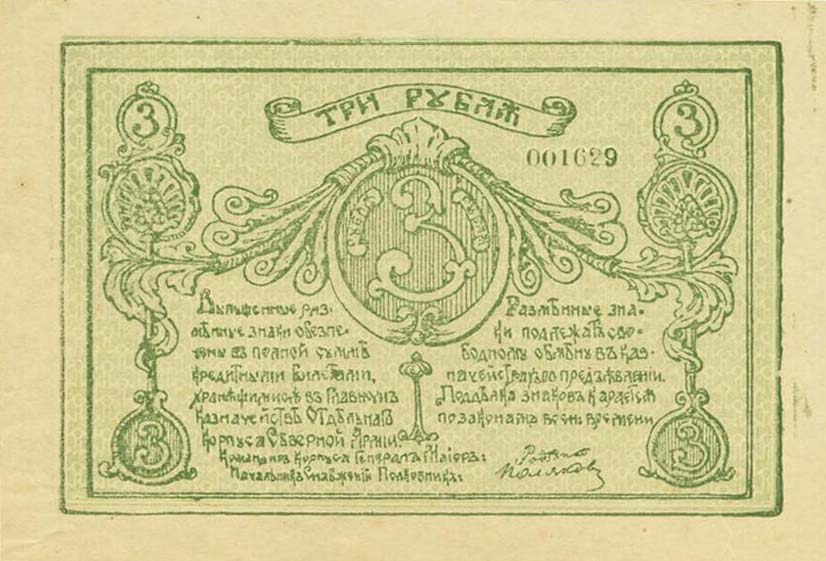 ТРИ РУБЛЯ
3
3
001629
РУБЛЯ 3 РУБЛЯ
Выпущенные раз-
мѣнные знаки обезпе-
чены въ полной суммѣ
кредитными билетами,
хранящимися въ Главномъ
Казначействѣ Отдѣльнаго
Корпуса Сѣверной Арміи.
Размѣнные зна-
ки подлежатъ сво-
бодному обмѣну въ каз-
начействахъ по предъявленіи.
Поддѣлка знаковъ карается
по законамъ воен. времени
3
3
Командиръ Корпуса Генералъ Маіоръ: Родзянко
Начальникъ Снабженій Полковникъ: Поляковъ